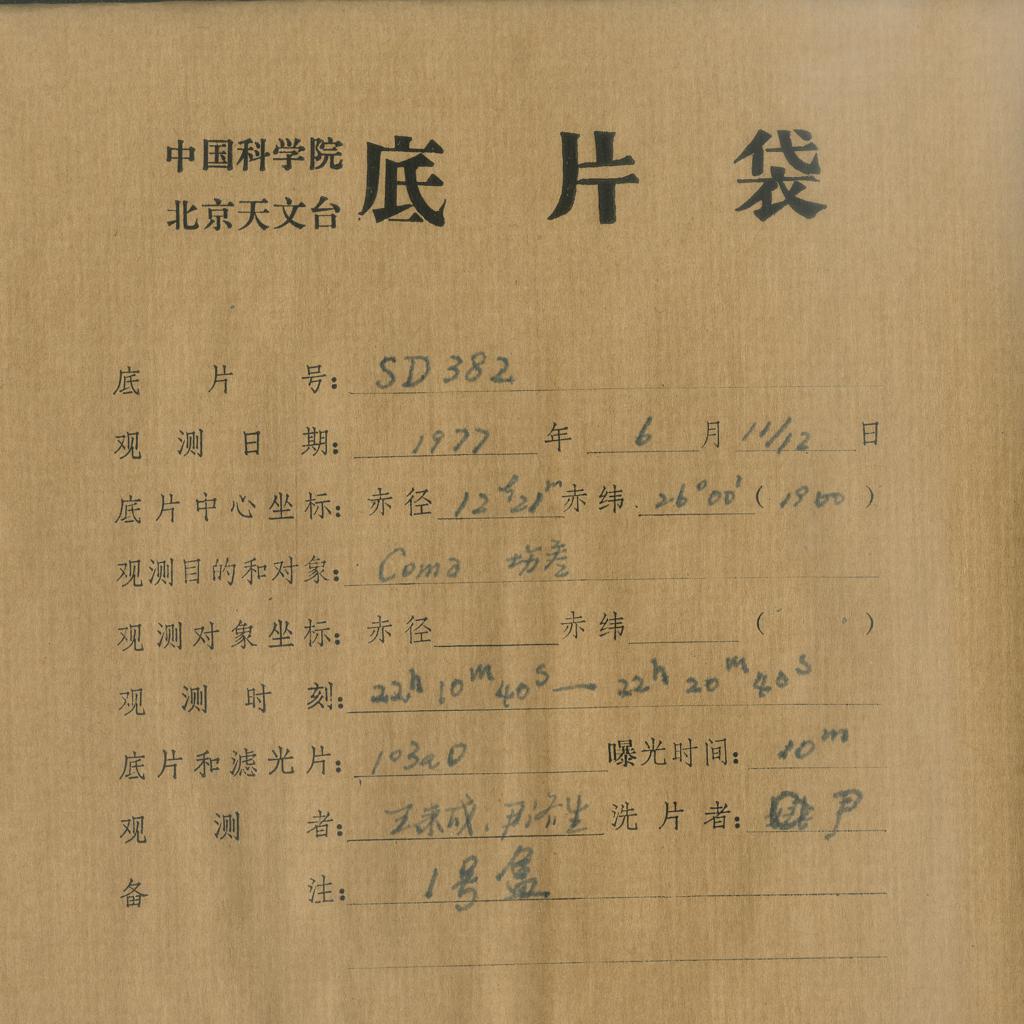 中国科学院
北京天文台
底片袋
底片号：SD 382
观测日期：1977年6月11/12日
底片中心坐标：赤径12ʰ21ᵐ赤纬26°00′（1900）
观测目的和对象：Coma
观测对象坐标：赤径 赤纬（ ）
观测时刻：22ʰ10ᵐ40ˢ—22ʰ20ᵐ40ˢ
底片和滤光片：103aO 曝光时间：10ᵐ
观测者：王来成、尹济生 洗片者：尹
备注：1号盒